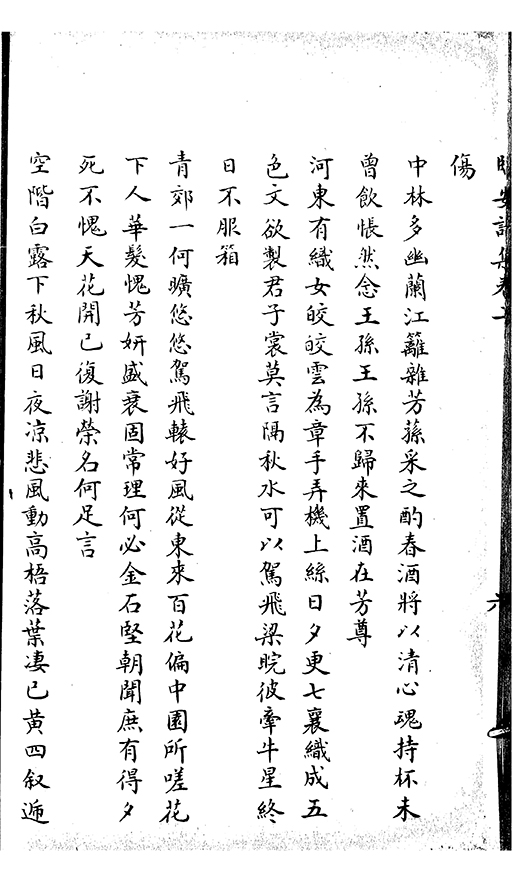 傷
中林多幽蘭江籬雜芳蓀采之酌春酒將以清心魂持杯未
曾飲悵然念王孫王孫不歸來置酒在芳尊
河東有織女皎皎雲為章手弄機上絲日夕更七襄織成五
色文欲製君子裳莫言隔秋水可以駕飛梁睆彼牽牛星終
日不服箱
青郊一何曠悠悠駕飛轅好風從東來百花偏中園所嗟花
下人華髮愧芳妍盛衰固常理何必金石堅朝聞庶有得夕
死不愧天花開已復謝榮名何足言
空階白露下秋風日夜凉悲風動高梧落葉凄已黄四叙遞